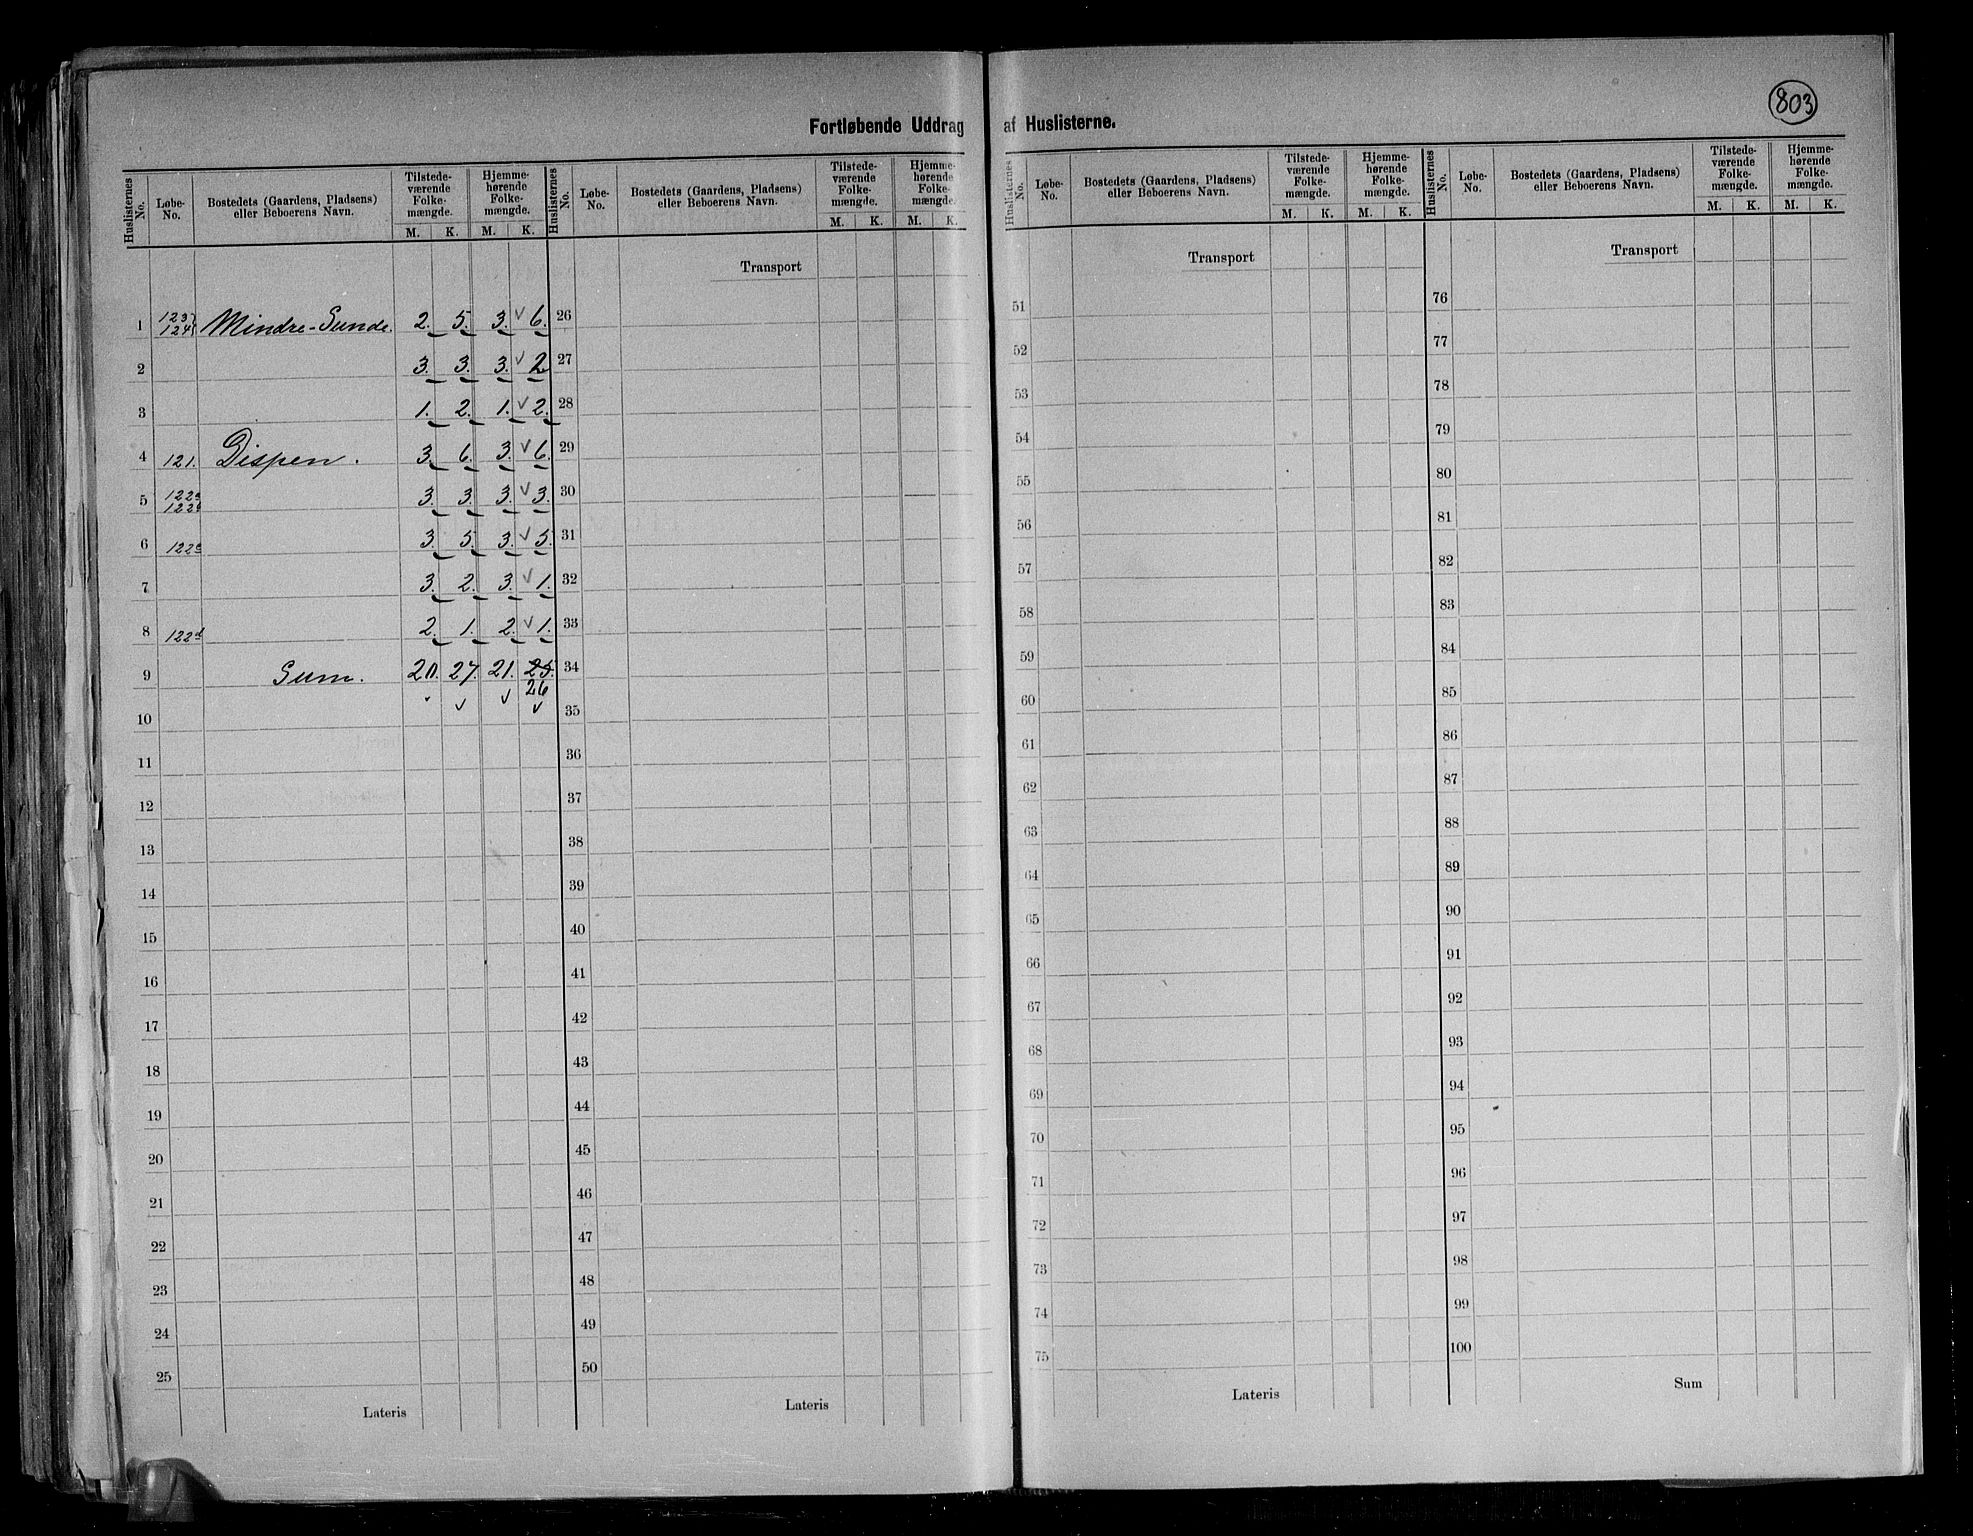 803
Fortløbende Uddrag af Huslisterne.
Huslisternes No. Løbe-No. Bostedets (Gaardens, Pladsens) eller Beboerens Navn. Tilstede-værende Folke-mængde. M. K. Hjemme-hørende Folke-mængde. M. K.
Huslisternes No. Løbe-No. Bostedets (Gaardens, Pladsens) eller Beboerens Navn. Tilstede-værende Folke-mængde. M. K. Hjemme-hørende Folke-mængde. M. K.
Huslisternes No. Løbe-No. Bostedets (Gaardens, Pladsens) eller Beboerens Navn. Tilstede-værende Folke-mængde. M. K. Hjemme-hørende Folke-mængde. M. K.
Huslisternes No. Løbe-No. Bostedets (Gaardens, Pladsens) eller Beboerens Navn. Tilstede-værende Folke-mængde. M. K. Hjemme-hørende Folke-mængde. M. K.
Transport Transport Transport
1 Mindre-Sunde. 2. 5. 3. √ 6. 26 51 76
2 3. 3. 3. √ 2. 27 52 77
3 1. 2. 1. √ 2. 28 53 78
4 121. Dispen. 3. 6. 3. √ 6. 29 54 79
5 3. 3. 3. √ 3. 30 55 80
6 3. 5. 3. √ 5. 31 56 81
7 3. 2. 3. √ 1. 32 57 82
8 122d 2. 1. 2. √ 1. 33 58 83
9 Sum. 20. 27. 21. 25. 34 59 84
26
10 √ √ √ 35 60 85
11 36 61 86
12 37 62 87
13 38 63 88
14 39 64 89
15 40 65 90
16 41 66 91
17 42 67 92
18 43 68 93
19 44 69 94
20 45 70 95
21 46 71 96
22 47 72 97
23 48 73 98
24 49 74 99
25 50 75 100
Lateris Lateris Lateris Sum